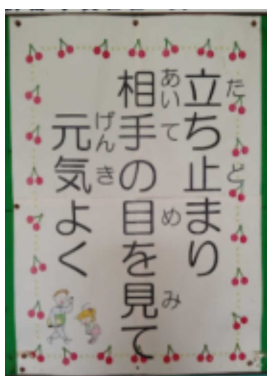 立ち止まり
相手の目を見て
元気よく